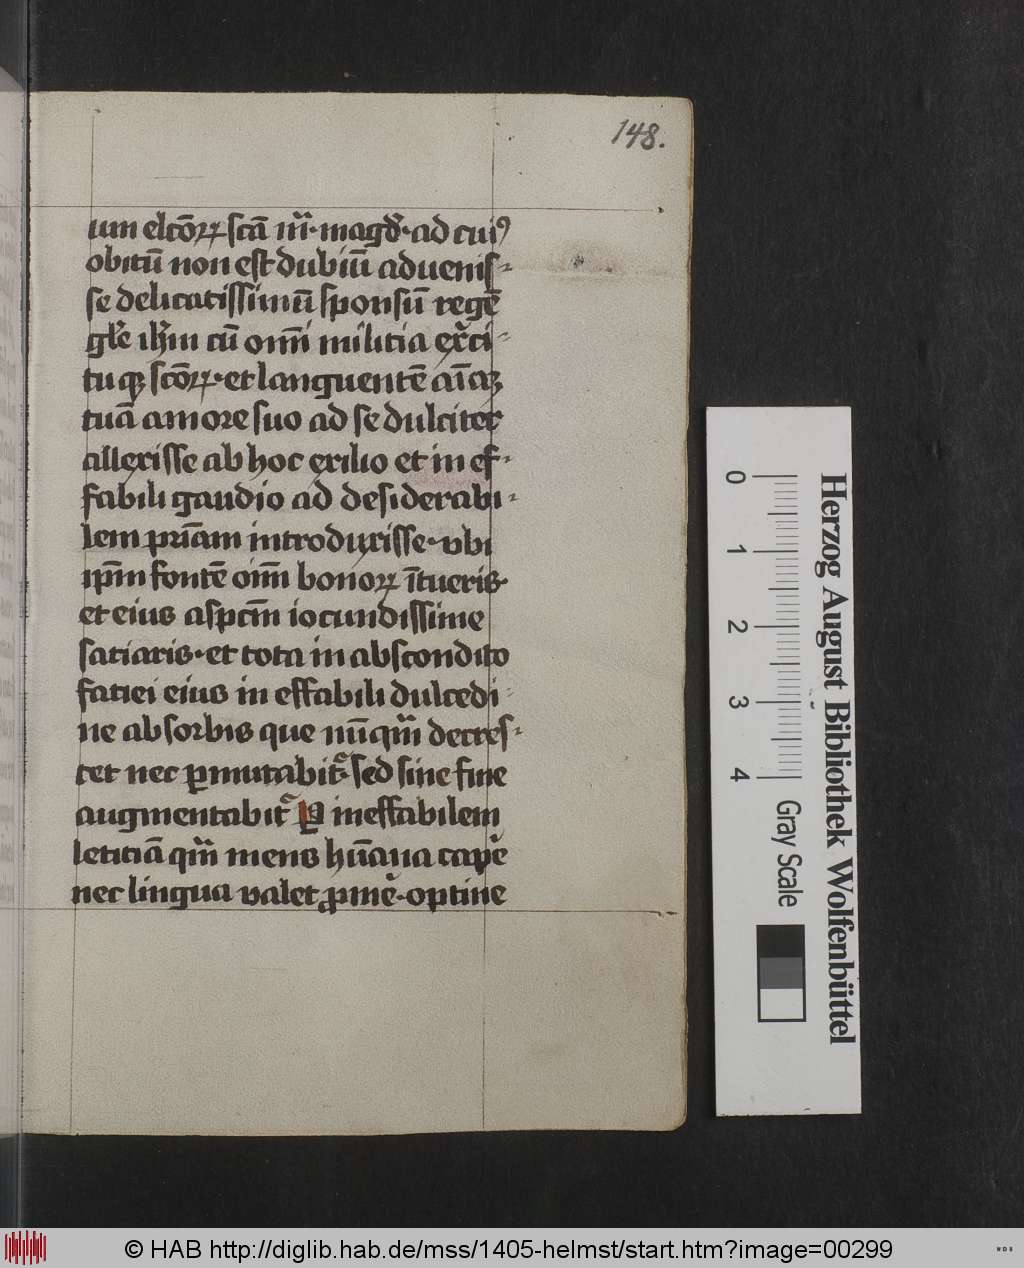 148.
um elcōꝝ scā m̄. magd̓. ad cuiꝰ
obitū non est dubiū aduenis-
se delicatissimū sponsū regē
gl̄e ih̄m cū om̄i militia ex̓ci-
tuqꝫ scōꝝ. et languentē aīaꝫ
tuā amore suo ad se dulciter
allexisse ab hoc exilio et in ef-
fabili gaudio ad desiderabi-
lem pr̄iam introduxisse. vbi
ip̄m fontē oīm bonoꝝ ītueris.
et eius aspcm̄ iocundissime
satiaris. et tota in abscondito
faciei eius in effabili dulcedi-
ne absorbis que nūqm̄ decres-
cet nec ꝑmutabit̾. sed sine fine
augmentabit̾ ꝑ ineffabilem
letitiā qm̄ mens hūana cap̓e
nec lingua valet ꝓmē. optine
Herzog August Bibliothek Wolfenbüttel
0 1 2 3 4 Gray Scale
© HAB http://diglib.hab.de/mss/1405-helmst/start.htm?image=00299